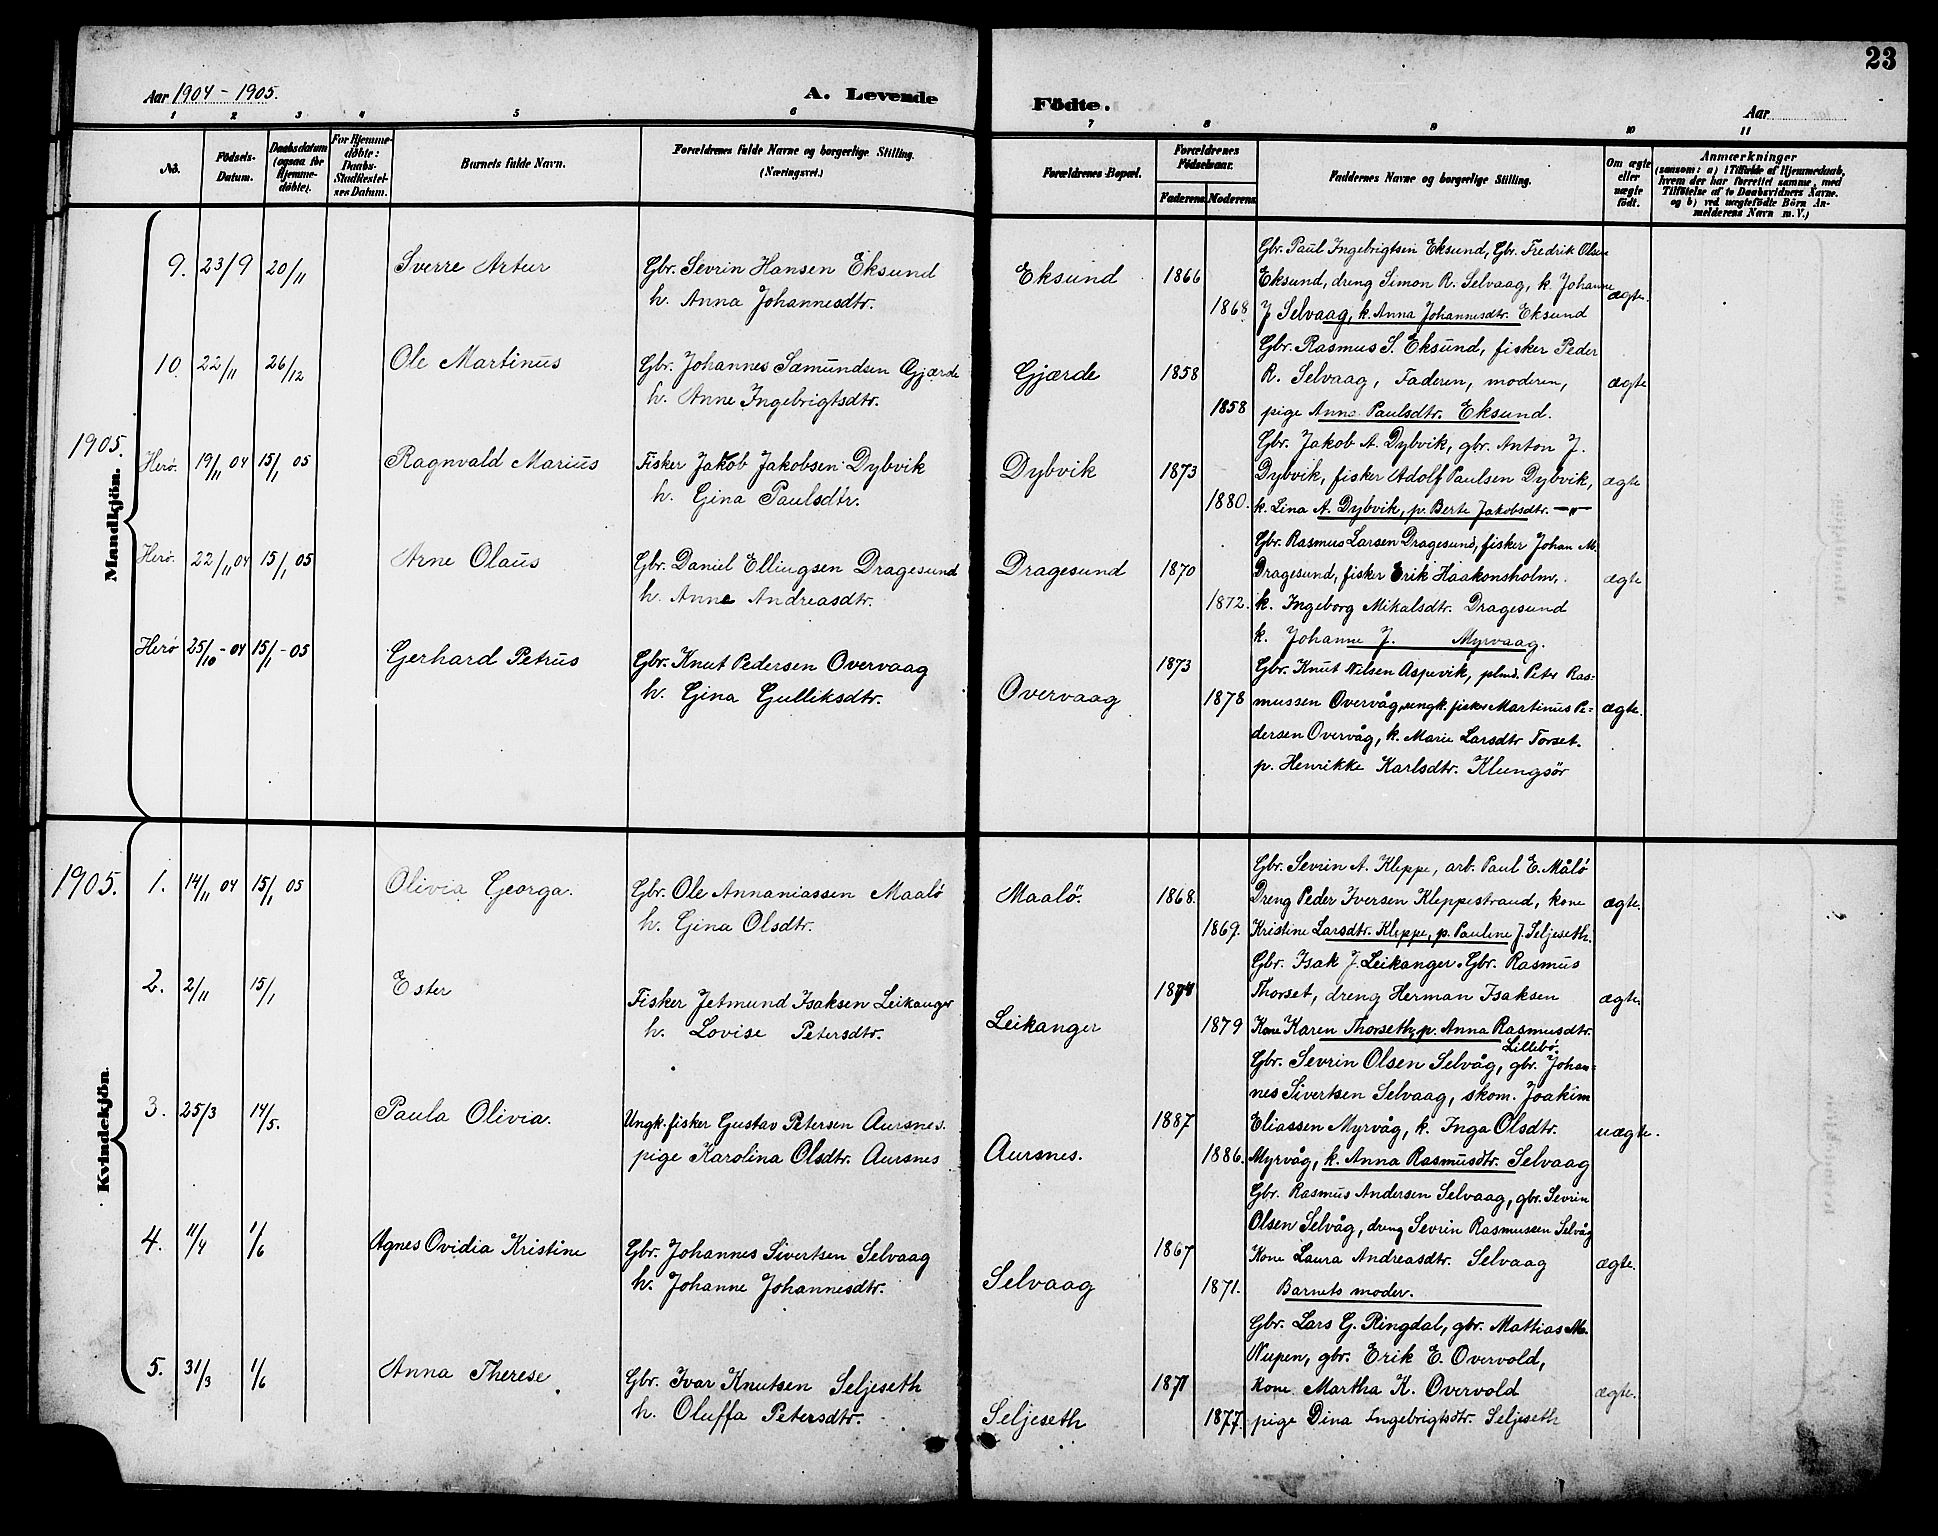 23
Aar 1904 - 1905.
A. Levende Födte.
Aar
1 2 3 4 5 6 7 8 9 10 11
No.
Födsels-Datum.
Daabsdatum (ogsaa for Hjemme-döbte).
For Hjemme-döbte: Daabs-Stadfæstel-ses Datum.
Barnets fulde Navn.
Forældrenes fulde Navne og borgerlige Stilling. (Næringsvei.)
Forældrenes Bopæl.
Forældrenes Födselsaar.
Faderens Moderens
Faddernes Navne og borgerlige Stilling.
Om ægte eller uægte födt.
Anmærkninger
(saasom: a) i Tilfælde af Hjemmedaab, hvem der har forrettet samme, med Tilföielse af to Daabsvidners Navne. og b) ved uægtefödte Börn An-melderens Navn m. V.)
Mandkjön.
9. 23/9 20/11 Sverre Artur
Gbr. Sevrin Hansen Eksund
h. Anna Johannesdtr.
Eksund 1866 1868
Gbr. Paul Ingebrigtsen Eksund, Gbr. Fredrik Olsen
Eksund, dreng Simon R. Selvaag, k. Johanne
J Selvaag, k. Anna Johannesdtr. Eksund
ægte.
10. 22/11 26/12 Ole Martinus
Gbr. Johannes Samundsen Gjærde
h. Anne Ingebrigtsdtr.
Gjærde 1858 1858
Gbr. Rasmus S. Eksund, fisker Peder
R. Selvaag, Faderen, moderen,
pige Anna Paulsdtr. Eksund.
ægte
1905.
Herö. 19/11 04 15/1 05 Ragnvald Marius
Fisker Jakob Jakobsen Dybvik
h. Gina Paulsdtr.
Dybvik 1873 1880.
Gbr. Jakob A. Dybvik, gbr. Anton J.
Dybvik, fisker Adolf Paulsen Dybvik,
k. Lina A. Dybvik, p. Berte Jakobsdtr. —"—
ægte
Herö. 22/11 04 15/1 05 Arne Olaus
Gbr. Daniel Ellingsen Dragesund
h. Anne Andreasdtr.
Dragesund 1870 1872.
Gbr. Rasmus Larsen Dragesund, fisker Johan M.
Dragesund, fisker Erik Haakonsholm,
k. Ingeborg Mikalsdtr. Dragesund
k. Johanne J. Myrvaag.
ægte
Herö 25/10 - 04 15/1 - 05 Gerhard Petrus
Gbr. Knut Pedersen Overvaag
h. Gina Gulliksdtr.
Overvaag 1873 1878
Gbr. Knut Nilsen Aspevik, plmd. Peter Ras-
mussen Overvåg, ungk. fisker Martinus Pe-
dersen Overvåg, k. Marie Larsdtr Torset.
p. Henrikke Karlsdtr. Klungsör
ægte.
Kvindekjön.
1905.
1. 14/11 04 15/1 05 Olivia Georga.
Gbr. Ole Annaniassen Maalö
h. Gina Olsdtr.
Maalö. 1868. 1869.
Gbr. Sevrin A. Kleppe, arb. Paul E. Målö
Dreng Peder Iversen Kleppestrand, kone
Kristine Larsdtr. Kleppe, p. Pauline J. Seljeseth.
ægte.
2. 2/11 15/1 Ester
Fisker Jetmund Isaksen Leikanger
h. Lovise Petersdtr.
Leikanger 1874 1879
Gbr. Isak J. Leikanger. Gbr. Rasmus
Thorset, dreng Herman Isaksen
Kone Karen Thorseth, p. Anna Rasmusdtr.
Lillebö.
ægte.
3. 25/3 14/5. Paula Olivia.
Ungk. fisker Gustav Petersen Aursnes.
pige Karolina Olsdtr. Aursnes
Aursnes. 1887 1886.
Gbr. Sevrin Olsen Selvåg, gbr. Johan-
nes Sivertsen Selvaag, skom. Joakim
Eliassen Myrvåg, k. Inga Olsdtr.
Myrvåg, k. Anna Rasmusdtr. Selvaag
uægte.
4. 11/4 1/6 Agnes Ovidia Kristine
Gbr. Johannes Sivertsen Selvaag
h. Johanne Johannesdtr.
Selvaag 1867 1871.
Gbr. Rasmus Andersen Selvaag, gbr. Sevrin
Olsen Selvåg, dreng Sevrin Rasmussen Selvåg
Kone Laura Andreasdtr. Selvaag
Barnets moder.
ægte.
5. 31/3 1/6 Anna Therese
Gbr. Ivar Knutsen Seljeseth
h. Oluffa Petersdtr.
Seljeseth 1871 1877.
Gbr. Lars G. Ringdal, gbr. Mattias M.
Nupen, gbr. Erik E. Overvold,
Kone Martha K. Overvold
pige Dina Ingebrigtsdtr. Seljeseth
ægte.